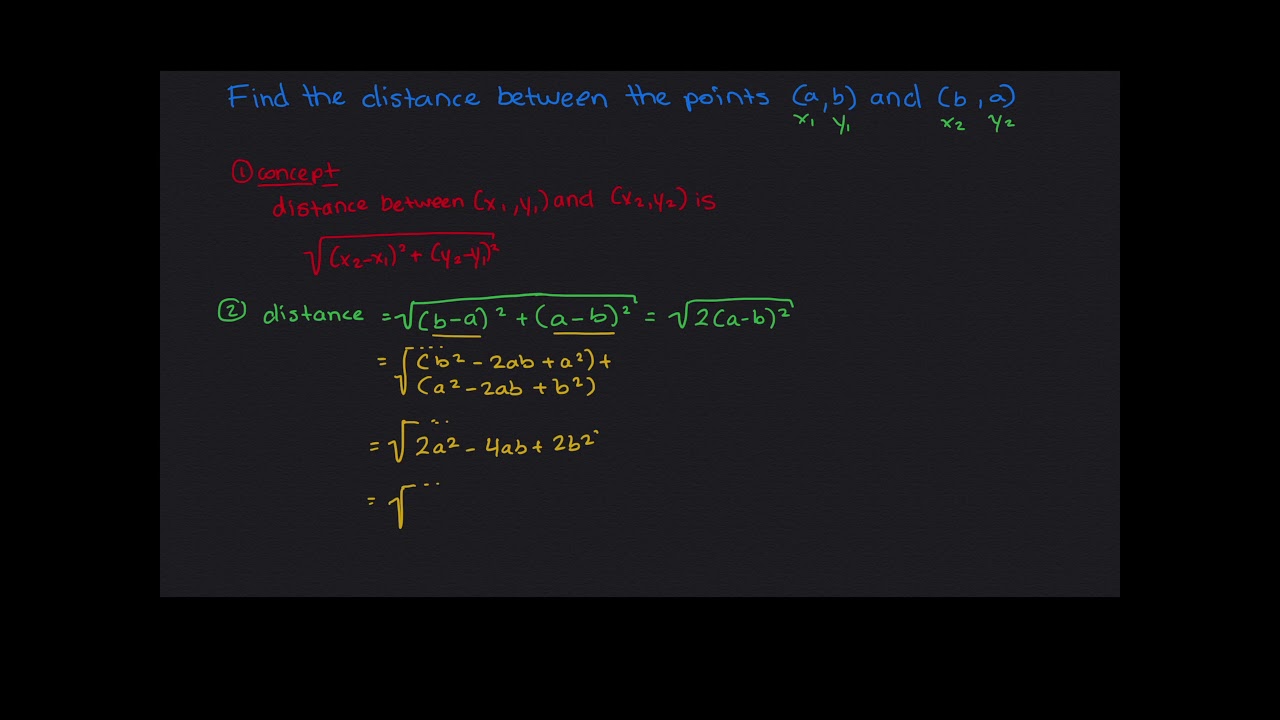 Find the distance between the points (a,b) and (b,a)
x₁ y₁ x₂ y₂
① concept
distance between (x₁,y₁) and (x₂,y₂) is
√(x₂-x₁)² + (y₂-y₁)²
② distance = √(b-a)² + (a-b)² = √2(a-b)²
= √(b² - 2ab + a²) +
(a² - 2ab + b²)
= √2a² - 4ab + 2b²
= √